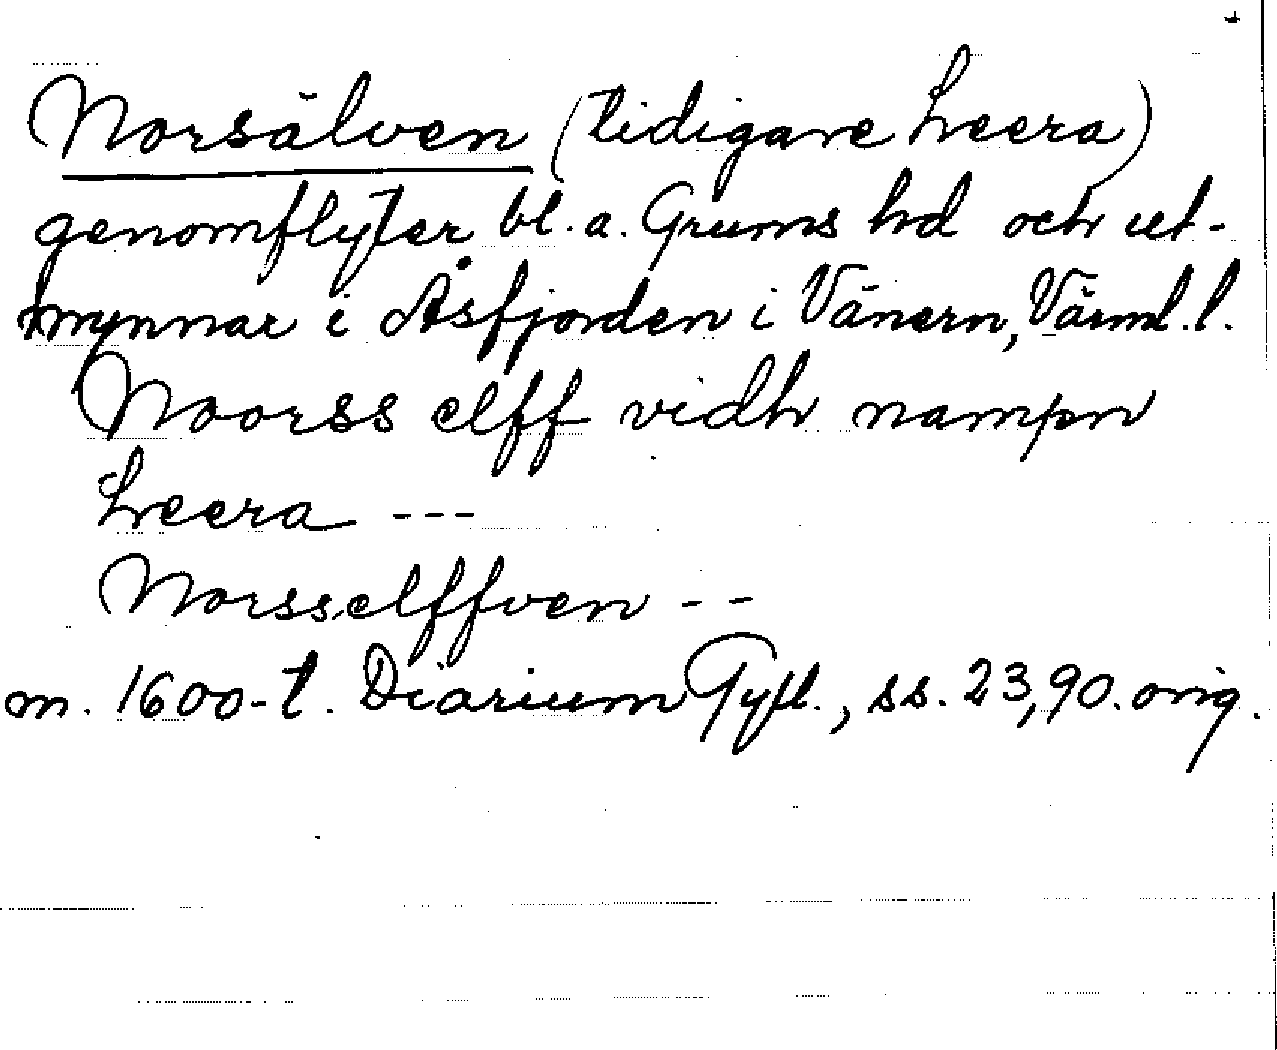 Norsälven (tidigare Leera)
genomflyter bl.a. Grums hd och ut-
mynnar i Åsfjorden i Vänern, Värml.l.
Noorss elff vidh nampn
Leera ---
Norsselffven --
m. 1600-t. Diarium Gyll., ss. 23,90. orig.